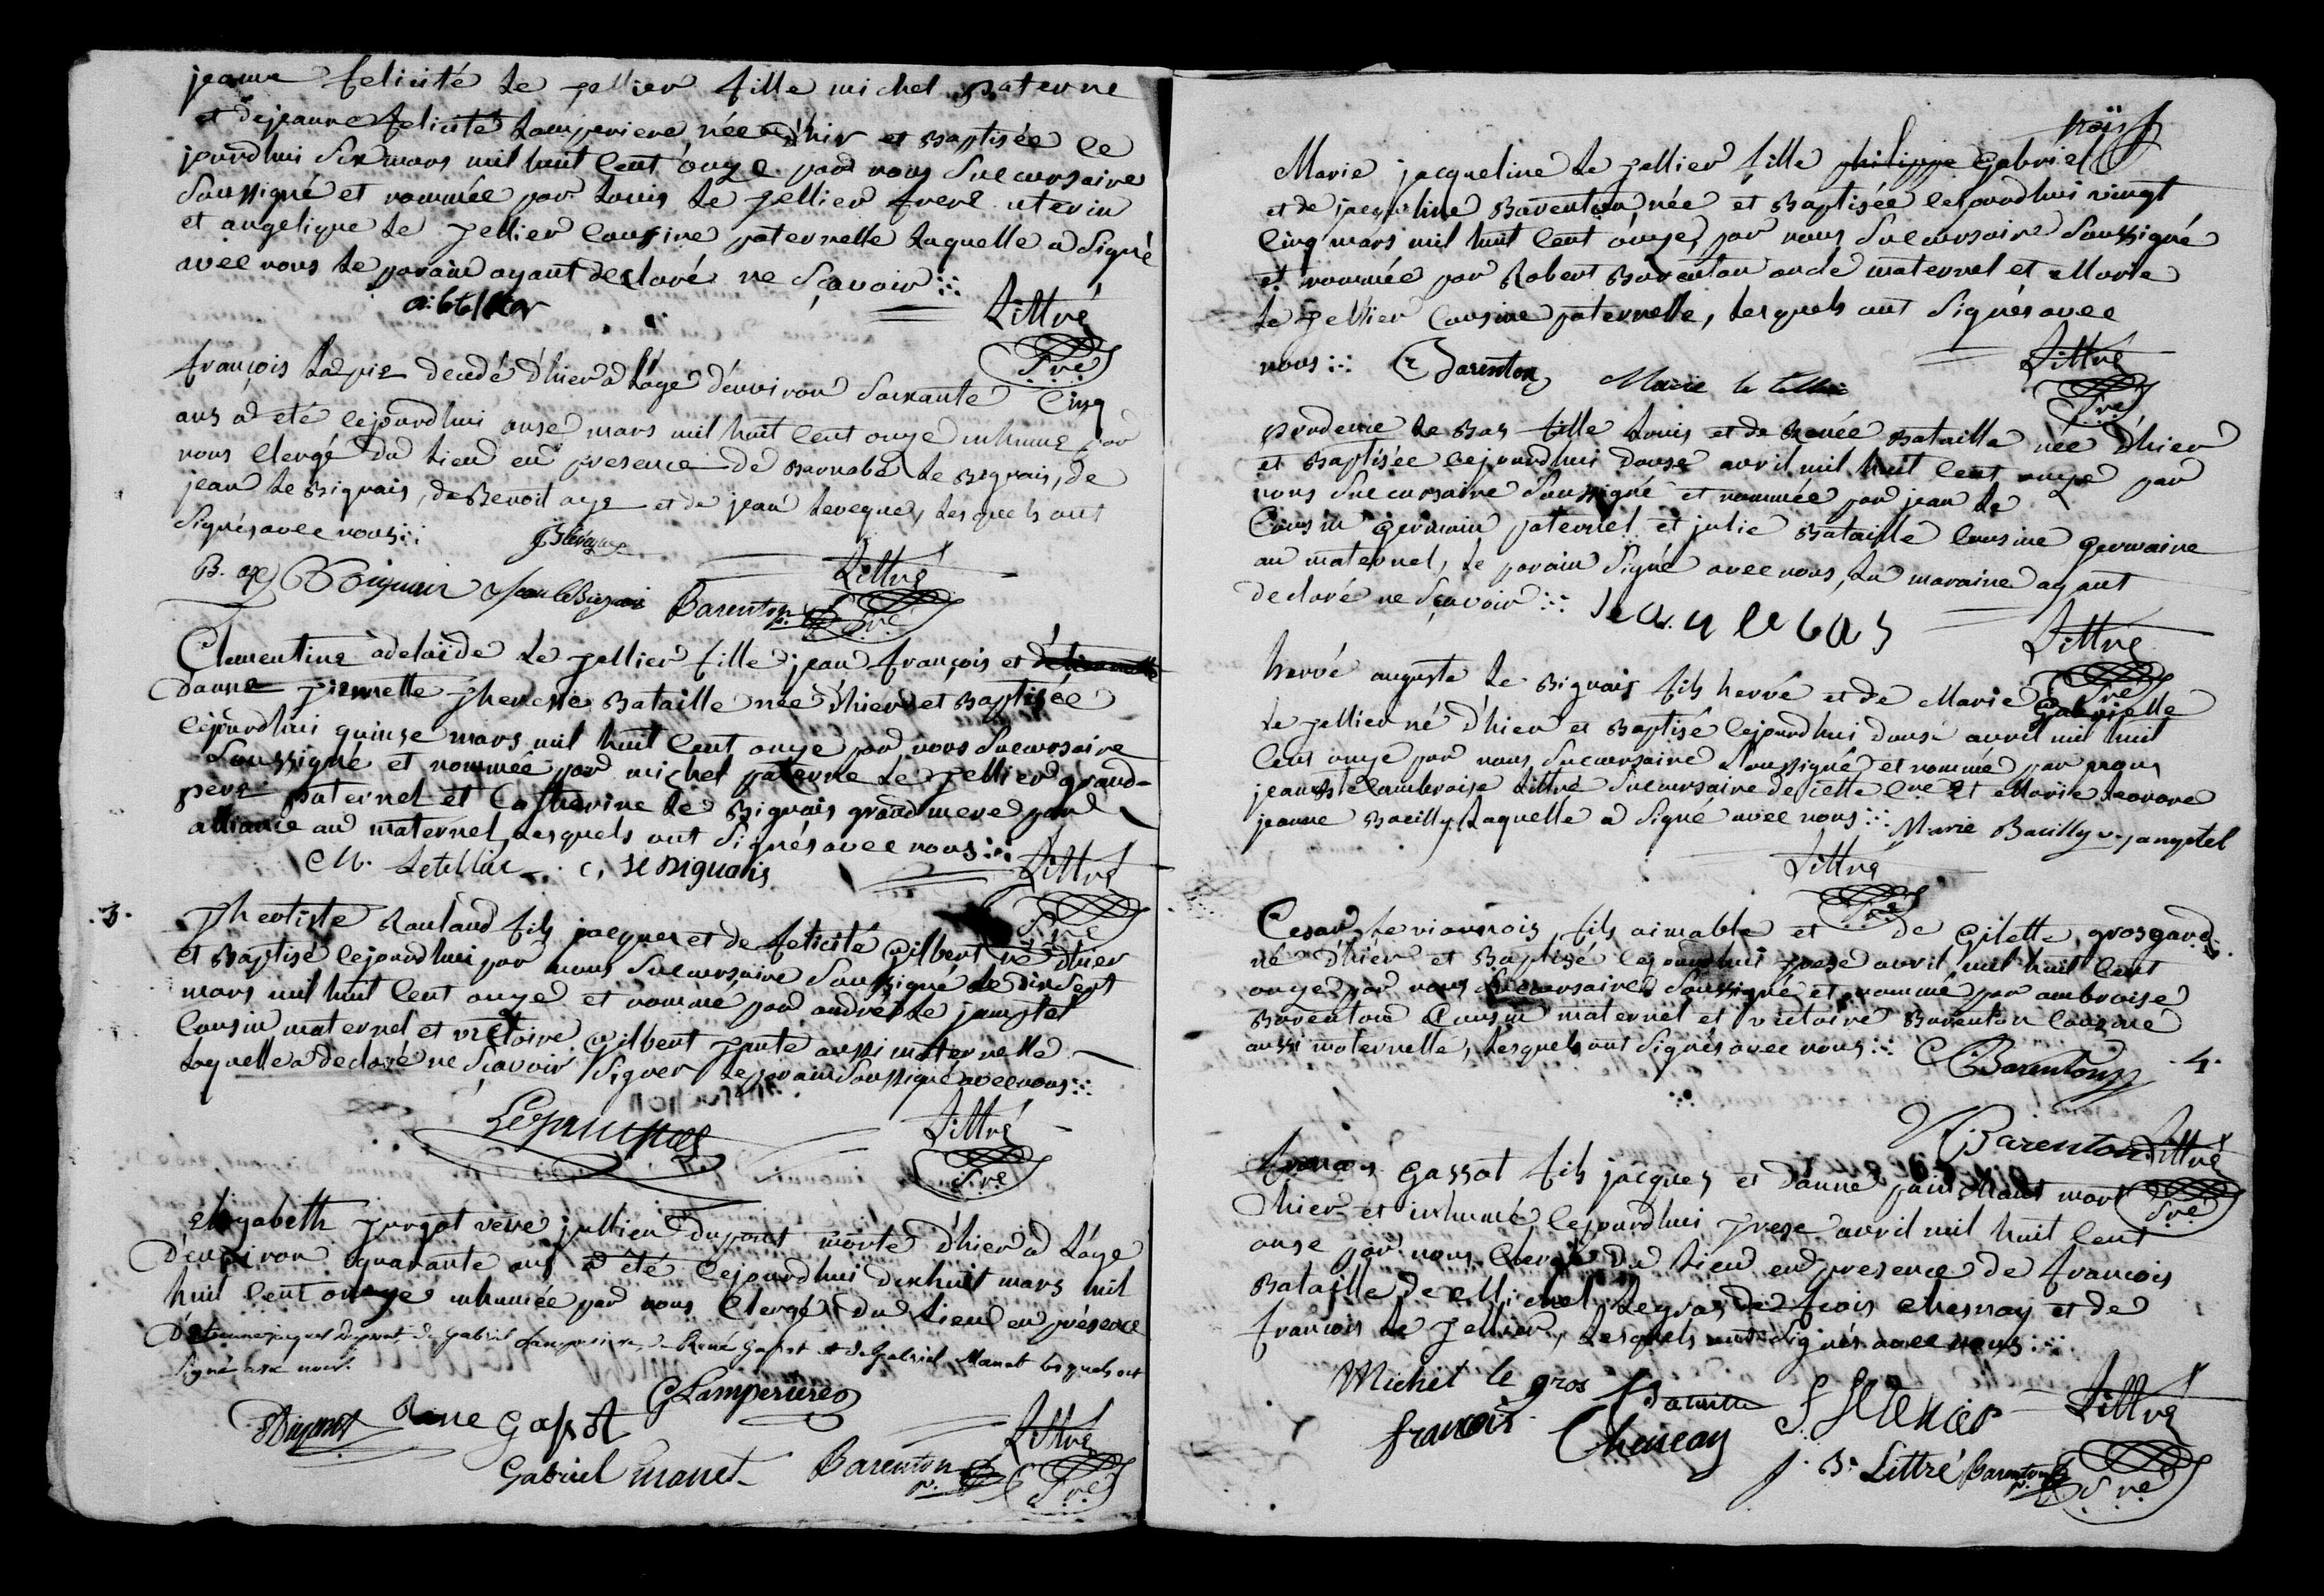 jeanne felicité Le tellier fille michel paterne
et de jeanne felicité Lamperiere née d'hier et Baptisée ce
jourdhui six mars mil huit cent onze par nous succursaire
soussigné et nommée par Louis Le tellier frere uterin
et angelique Le tellier cousine paternelle laquelle a signé
avec nous le parain ayant declaré ne sçavoir
Littré
françois decedé d'hier a l'age d'environ soixante Cinq
ans a eté cejourdhui onse mars mil huit cent onze inhumé par
nous clergé du lieu en presence de Barnabé Le Bignais, de
jean Le Bignais, de Benoit aze et de jean Leveque, lesquels ont
signés avec nous
Littré
B. Bignais Jean leBignais Barenton
Clementine adelaïde Le tellier fille jean françois et
d'anne pierrette therese Bataille née d'hier et Baptisée
cejourdhui quinse mars mil huit cent onze par nous succursaire
soussigné et nommée par michel paterne Le tellier grand-
pere paternel et Catherine Le Bignais grand mere par
alliance au maternel, lesquels ont signés avec nous
M. Letellier C. le Bignais Littré
.3. Rouland fils jacques et de felicité Gilbert né d'hier
et Baptisé cejourdhui par nous succursaire soussigné le dix sept
mars mil huit cent onze et nommé par andré Le jamptel
Cousin maternel et victoire Gilbert tante aussi maternelle
laquelle a declaré ne sçavoir signer le parain soussigné avec nous
Littré
S.re
elizabeth turgot veuve jullien dupont morte d'hier a l'age
d'environ quarante ans a été cejourdhui dixhuit mars mil
huit cent onze inhumée par nous Clergé du lieu en présence
D'etienne jacques dupont, de Gabriel Lamperiere, de René Gassot et de Gabriel Manet lesquels ont
signé avec nous.
GLamperiere
Dupont Rene Gassot Littré
Gabriel manet Barenton
S.re
Marie jacqueline Le tellier fille philippe Gabriel
et de jacqueline Barenton née et Baptisée cejourdhui vingt
Cinq mars mil huit cent onze, par nous succursaire soussigné
et nommée par Robert Barenton oncle maternel et Marie
Le tellier Cousine paternelle, lesquels ont signés avec
nous Barenton Marie le tellier Littré
prudence Le Bas fille Louis et de Renée Bataille née d'hier
et Baptisée cejourdhui douse avril mil huit cent onze par
nous succursaire soussigné et nommée par jean Le
Cousin germain paternel et julie Bataille Cousine germaine
au maternel, le parain signé avec nous, la maraine ayant
declaré ne sçavoir jean le bas
Littré
hervé auguste Le Bignais fils hervé et de Marie Gabrielle
Le tellier né d'hier et Baptisé cejourdhui douse avril mil huit
cent onze par nous succursaire soussigné et nommé par nous
jean Bte ambroise Littré succursaire de cette et Marie
jeanne Bacilly laquelle a signé avec nous Marie Bacilly
Littré
Cesar Le viannois fils aimable et de Gilette grosgard
né d'hier et Baptisé cejourdhui trese avril mil huit cent
onze par nous succursaire soussigné et nommé par ambroise
Barenton Cousin maternel et victoire Barenton Cousine
aussi maternelle, lesquels ont signés avec nous Barenton .4.
Barenton Littré
Gassot fils jacques et d'anne mort
d'hier et inhumé cejourdhui trese avril mil huit cent
onse par nous Clergé du lieu en presence de françois
Bataille de Michel Legros de fçois chesnay et de
françois Le tellier, lesquels ont signés avec nous
Michel le gros Bataille Littré
francois Chesnay
J. B. Littré Barenton S.re